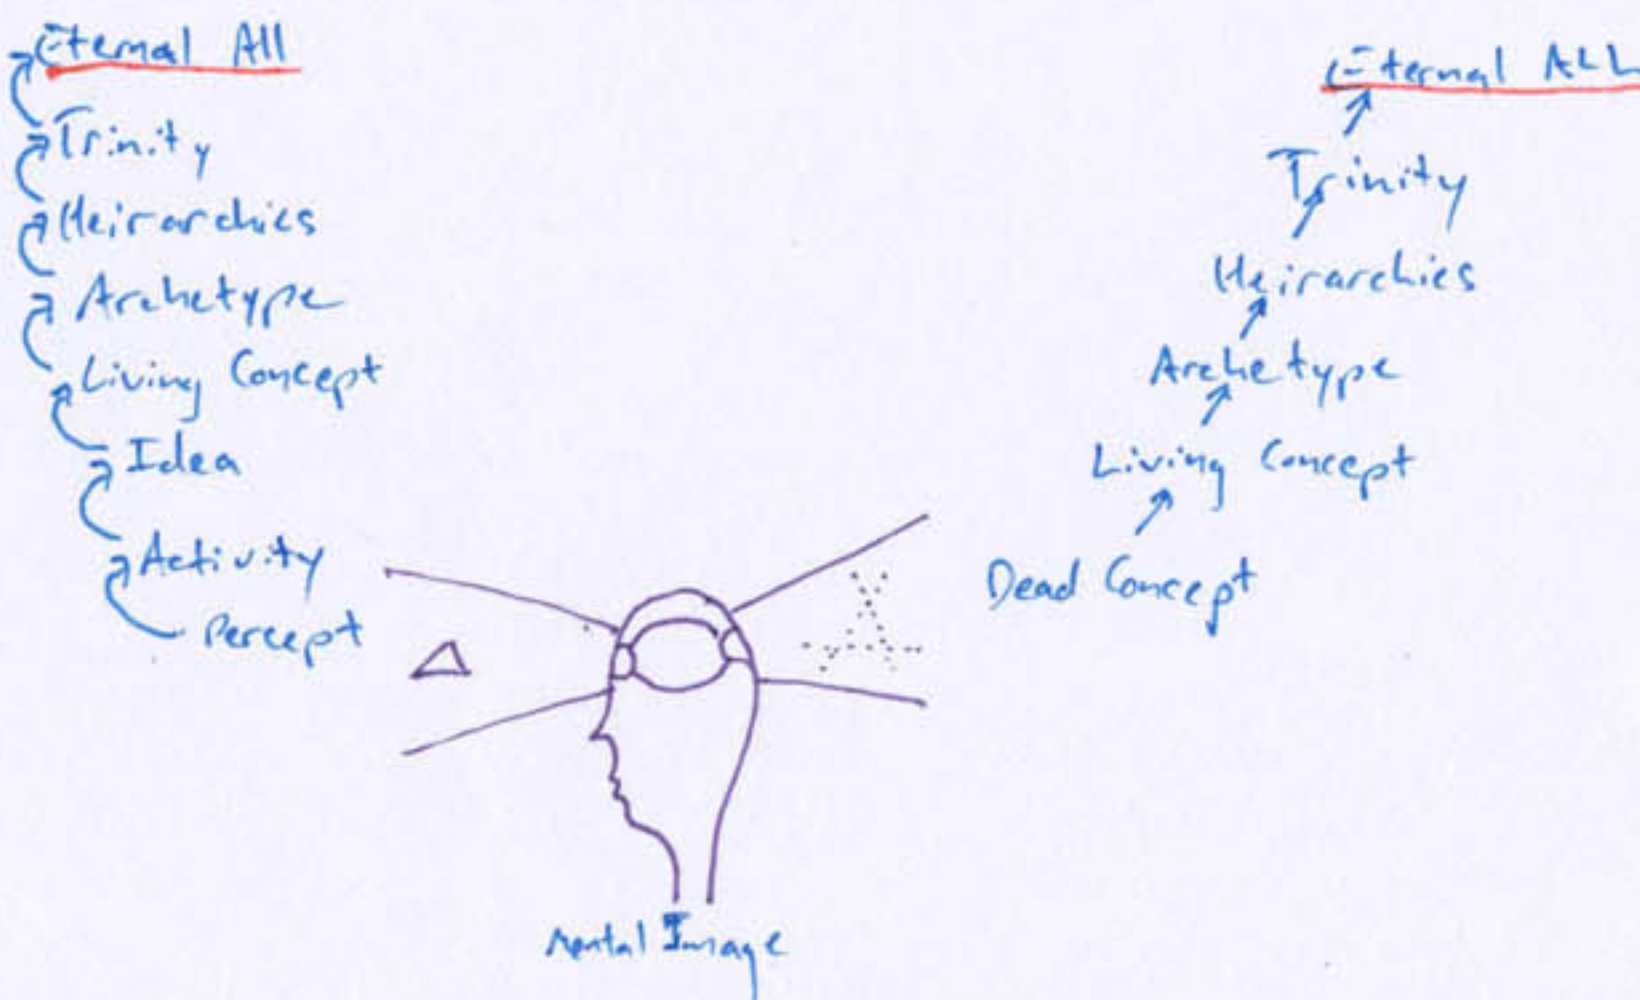 Eternal All
Trinity
Heirarchies
Archetype
Living Concept
Idea
Activity
Percept
Eternal ALL
Trinity
Heirarchies
Archetype
Living Concept
Dead Concept
Mental Image